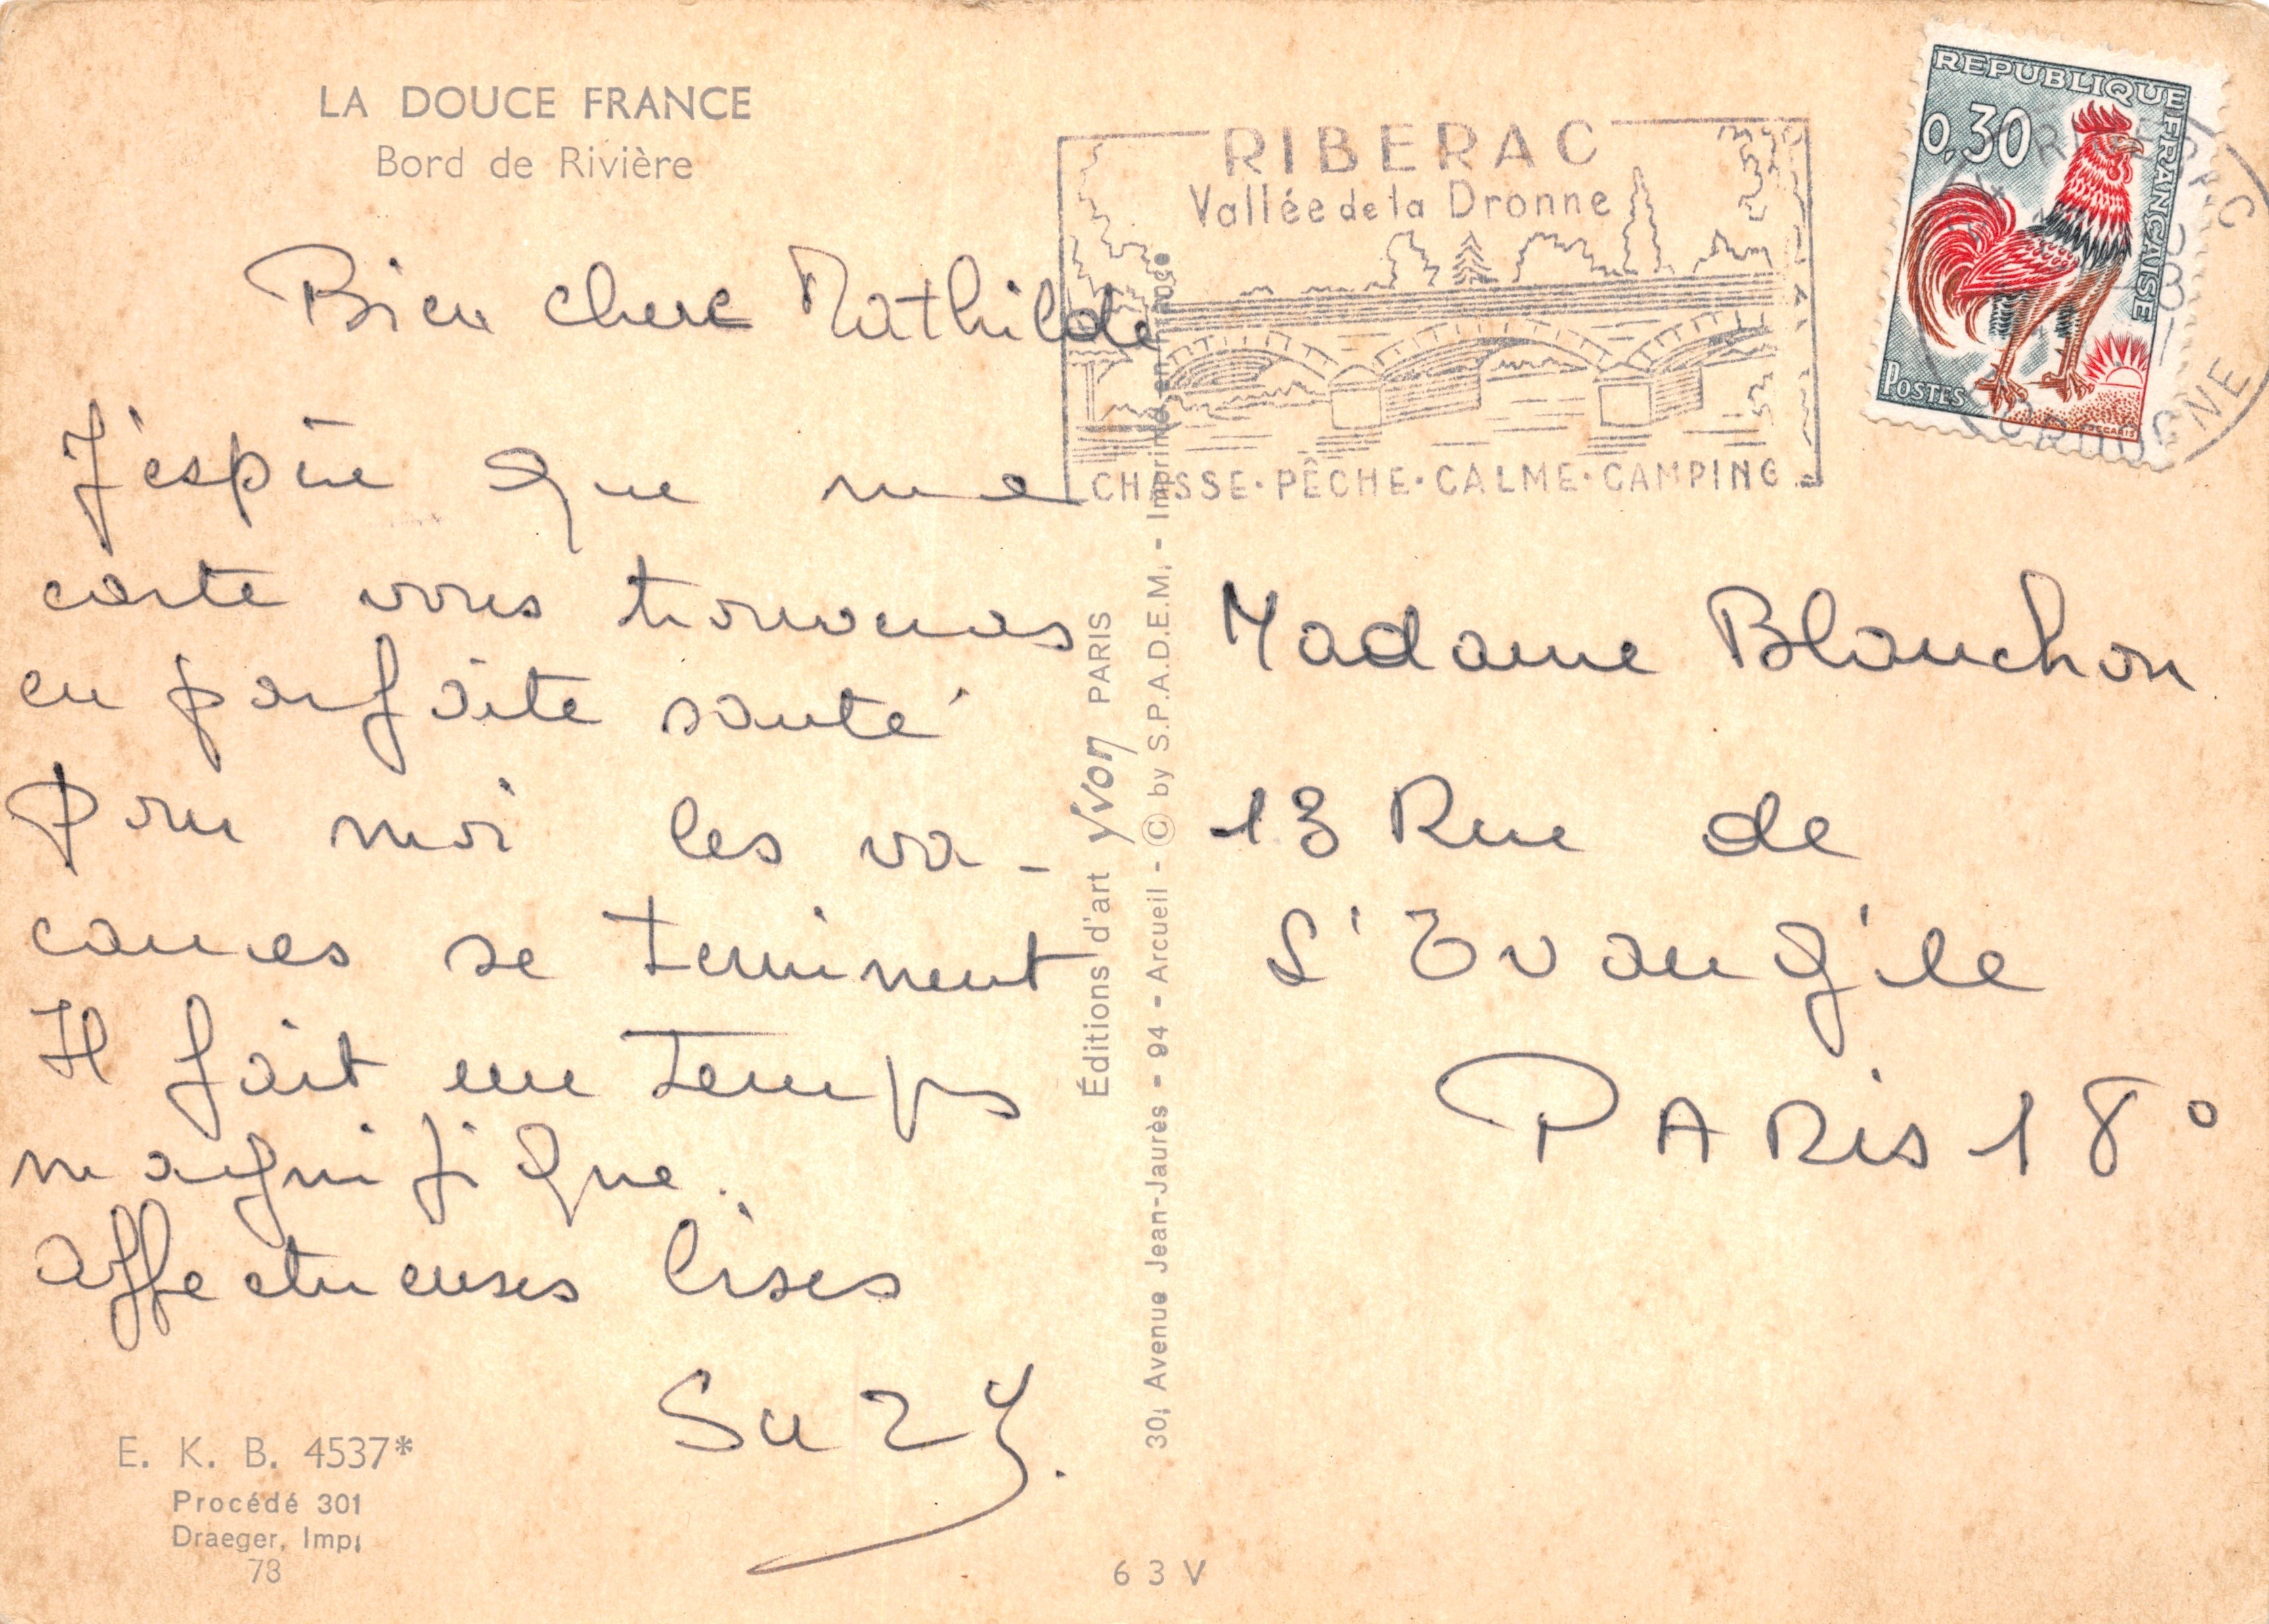 LA DOUCE FRANCE
Bord de Rivière
RIBERAC
Vallée de la Dronne
CHASSE·PÊCHE·CALME·CAMPING
REPUBLIQUE FRANÇAISE
0,30
POSTES
Bien chere Mathilde
J'espère que ma
carte vous trouveras
en parfaite santé
Pour moi les va-
cances se terminent
Il fait un temps
magnifique.
affectueuses bises
Suzy.
Éditions d'art Yvon PARIS
30, Avenue Jean-Jaurès - 94 - Arcueil - © by S.P.A.D.E.M. - Imprimé en France
Madame Blanchon
13 Rue de
L'Evangile
PARIS 18°
E. K. B. 4537*
Procédé 301
Draeger, Imp.
73
6 3 V